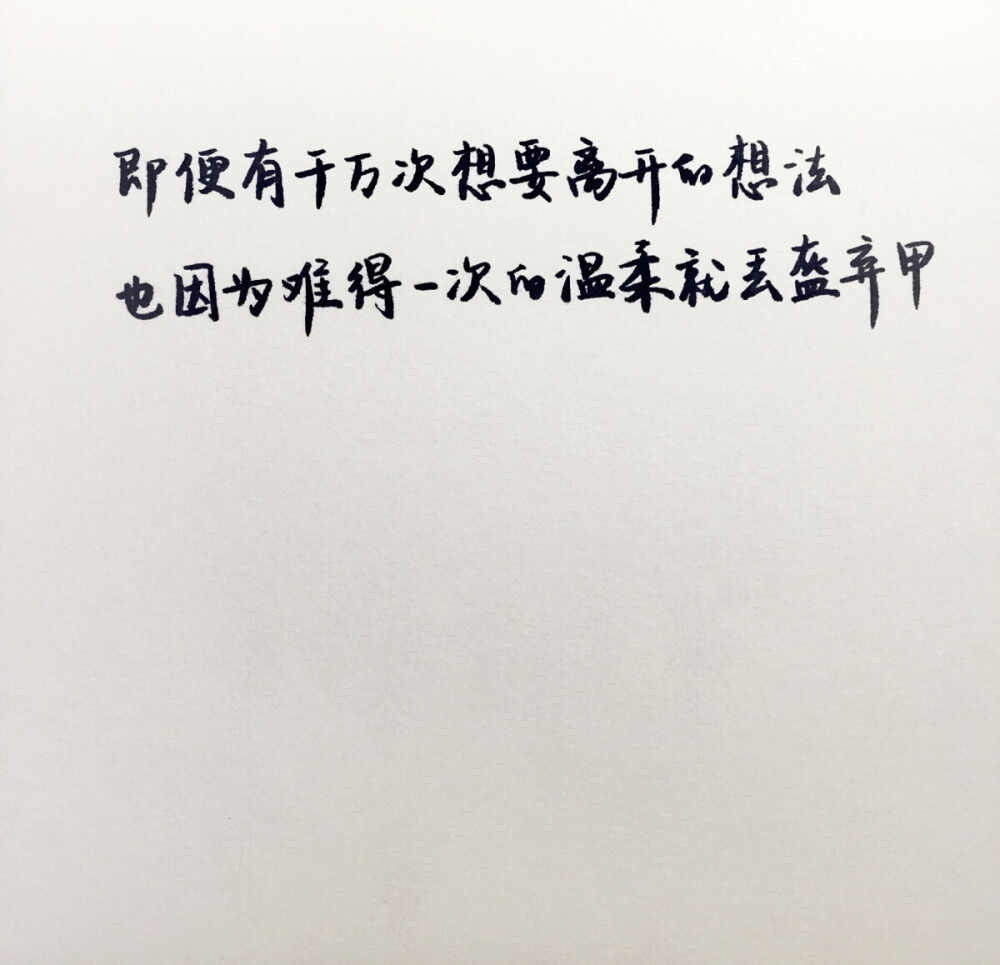 即便有千万次想要离开的想法
也因为难得一次的温柔就丢盔弃甲